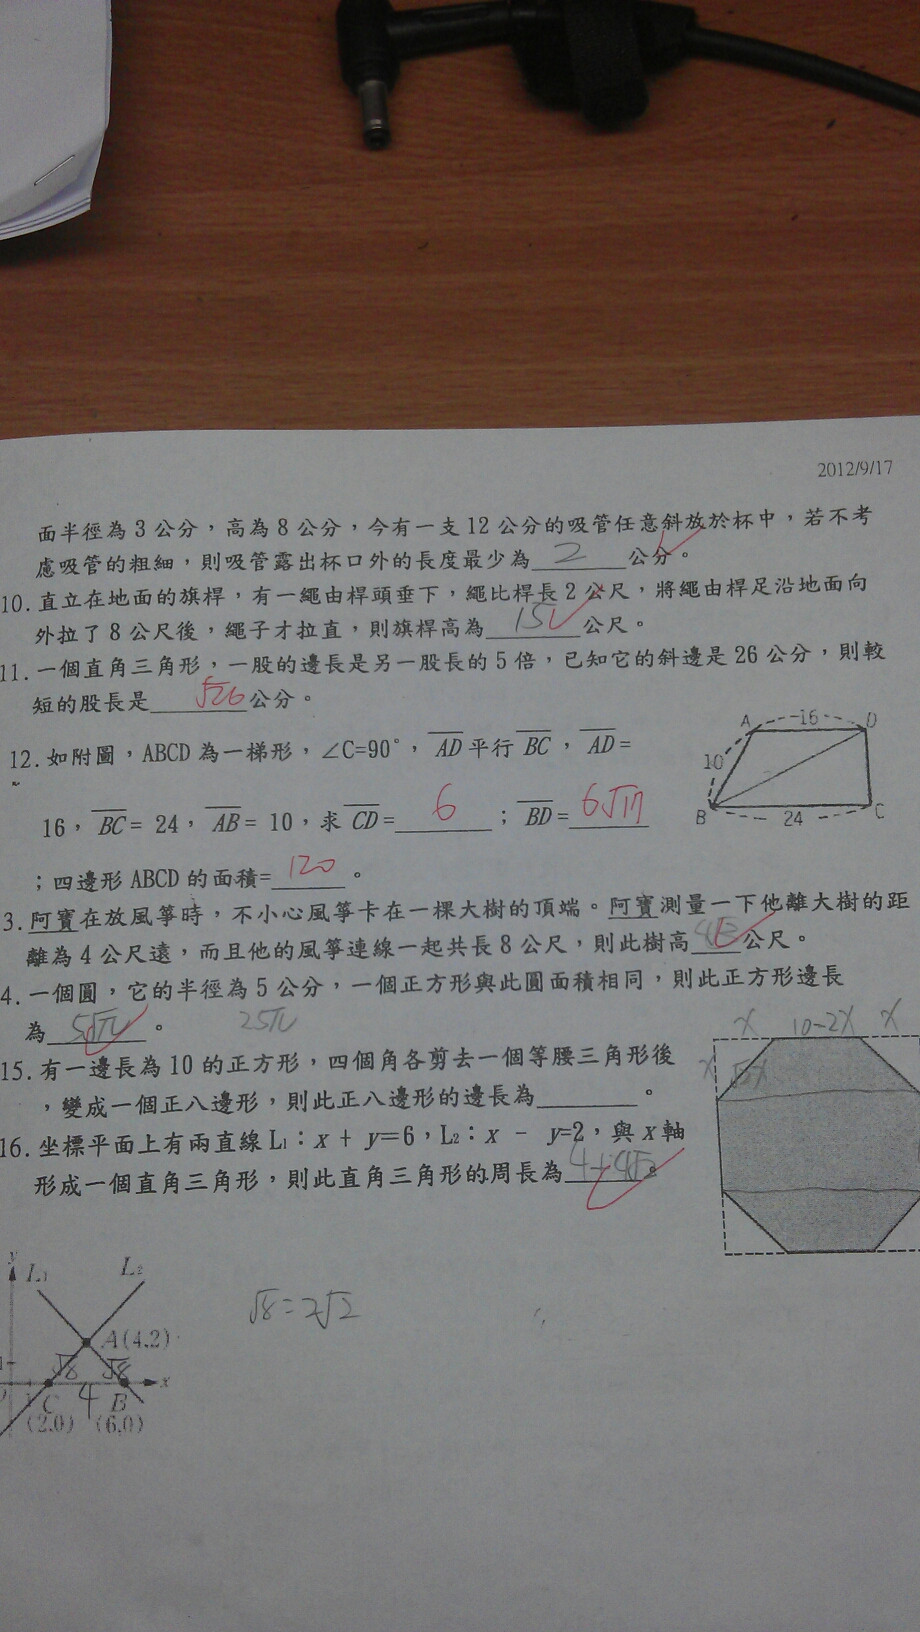 2012/9/17
面半徑為 3 公分，高為 8 公分，今有一支 12 公分的吸管任意斜放於杯中，若不考
慮吸管的粗細，則吸管露出杯口外的長度最少為 2 公分。
10. 直立在地面的旗桿，有一繩由桿頭垂下，繩比桿長 2 公尺，將繩由桿足沿地面向
外拉了 8 公尺後，繩子才拉直，則旗桿高為 15 公尺。
11. 一個直角三角形，一股的邊長是另一股長的 5 倍，已知它的斜邊是 26 公分，則較
短的股長是 √26 公分。
12. 如附圖，ABCD 為一梯形，∠C=90°，AD 平行 BC，AD =
16，BC = 24，AB = 10，求 CD = 6；BD = 6√17
；四邊形 ABCD 的面積= 120。
A 16 D
10
B 24 C
3. 阿寶在放風箏時，不小心風箏卡在一棵大樹的頂端。阿寶測量一下他離大樹的距
離為 4 公尺遠，而且他的風箏連線一起共長 8 公尺，則此樹高 4√3 公尺。
4. 一個圓，它的半徑為 5 公分，一個正方形與此圓面積相同，則此正方形邊長
為 5√π。 25π
15. 有一邊長為 10 的正方形，四個角各剪去一個等腰三角形後
，變成一個正八邊形，則此正八邊形的邊長為＿＿＿。
x 10-2x x
x √2x
16. 坐標平面上有兩直線 L₁：x + y=6，L₂：x - y=2，與 x 軸
形成一個直角三角形，則此直角三角形的周長為 4+4√2。
y L₁ L₂
A(4,2)
√8 √8
C 4 B x
(2,0) (6,0)
√8=2√2